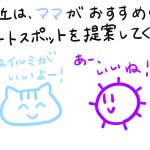 近は、ママがおすすめ
ートスポットを提案してく
スイルミが
いいよー!
あー、
いいね!